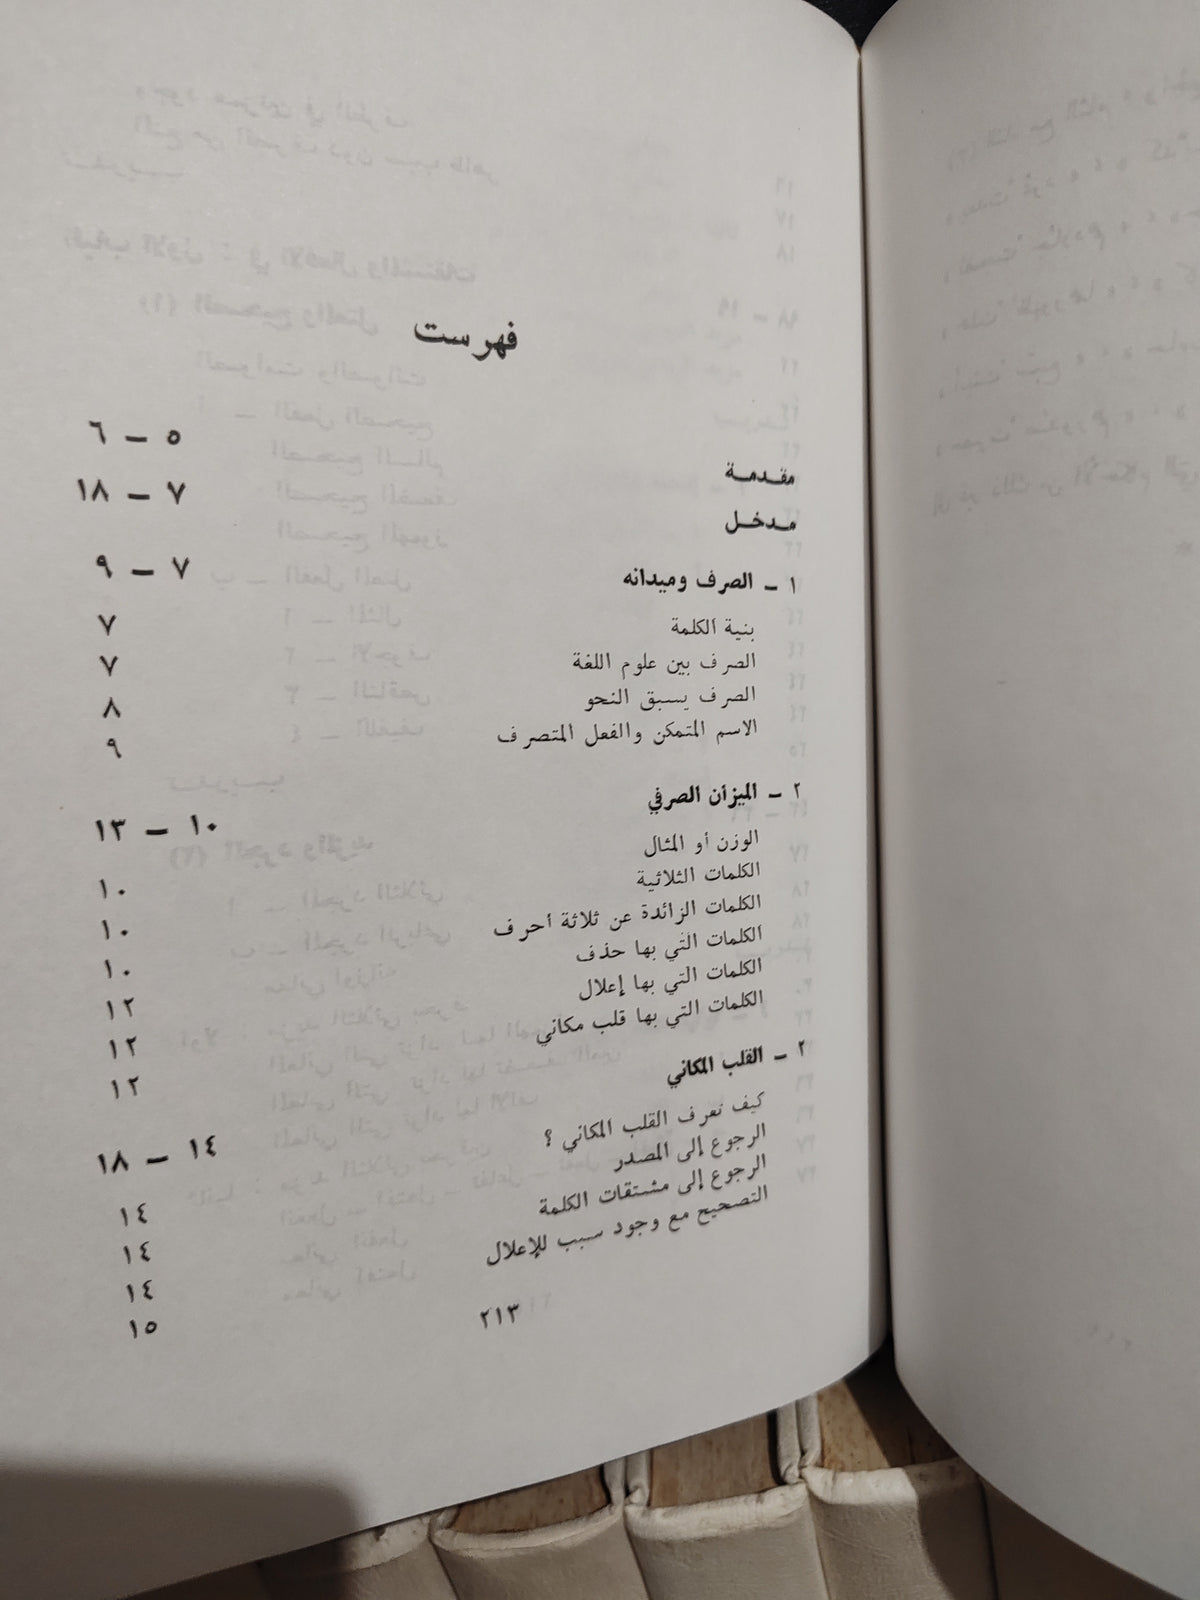 فهرست
مقدمة ٥ – ٦
مدخل ٧ – ١٨
١ – الصرف وميدانه ٧ – ٩
بنية الكلمة ٧
الصرف بين علوم اللغة ٧
الصرف يسبق النحو ٨
الاسم المتمكن والفعل المتصرف ٩
٢ – الميزان الصرفي ١٠ – ١٣
الوزن أو المثال ١٠
الكلمات الثلاثية ١٠
الكلمات الزائدة عن ثلاثة أحرف ١٠
الكلمات التي بها حذف ١٢
الكلمات التي بها إعلال ١٢
الكلمات التي بها قلب مكاني ١٢
٢ – القلب المكاني ١٤ – ١٨
كيف نعرف القلب المكاني ؟ ١٤
الرجوع إلى المصدر ١٤
الرجوع إلى مشتقات الكلمة ١٤
التصحيح مع وجود سبب للإعلال ١٥
٢١٣